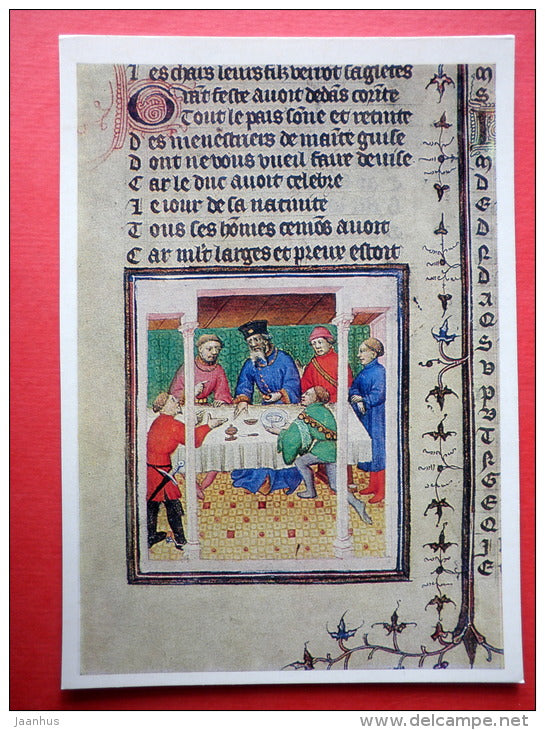 Les chais leurs filz virrot sagletes
Grāt feste avoit dedās corīte
Tout le pais sōne et retinte
Des menestriers de maīte guise
Dont ne vous vueil faire devise
Car le duc avoit celebre
Le iour de sa nativite
Tous ses hōmes cemōs avoit
Car mlt larges et preux estoit
jaanhus
www.delcampe.net